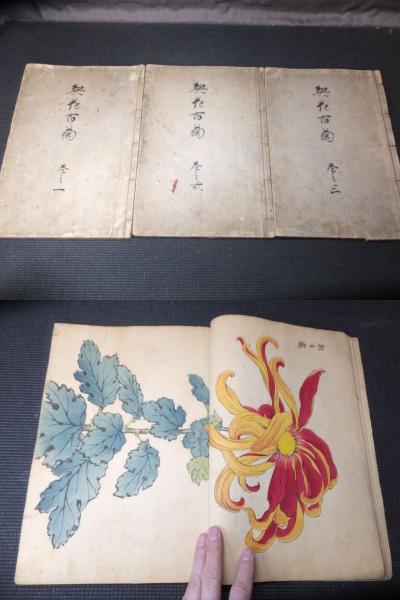 契花百菊
巻之一
契花百菊
巻之六
契花百菊
巻之三